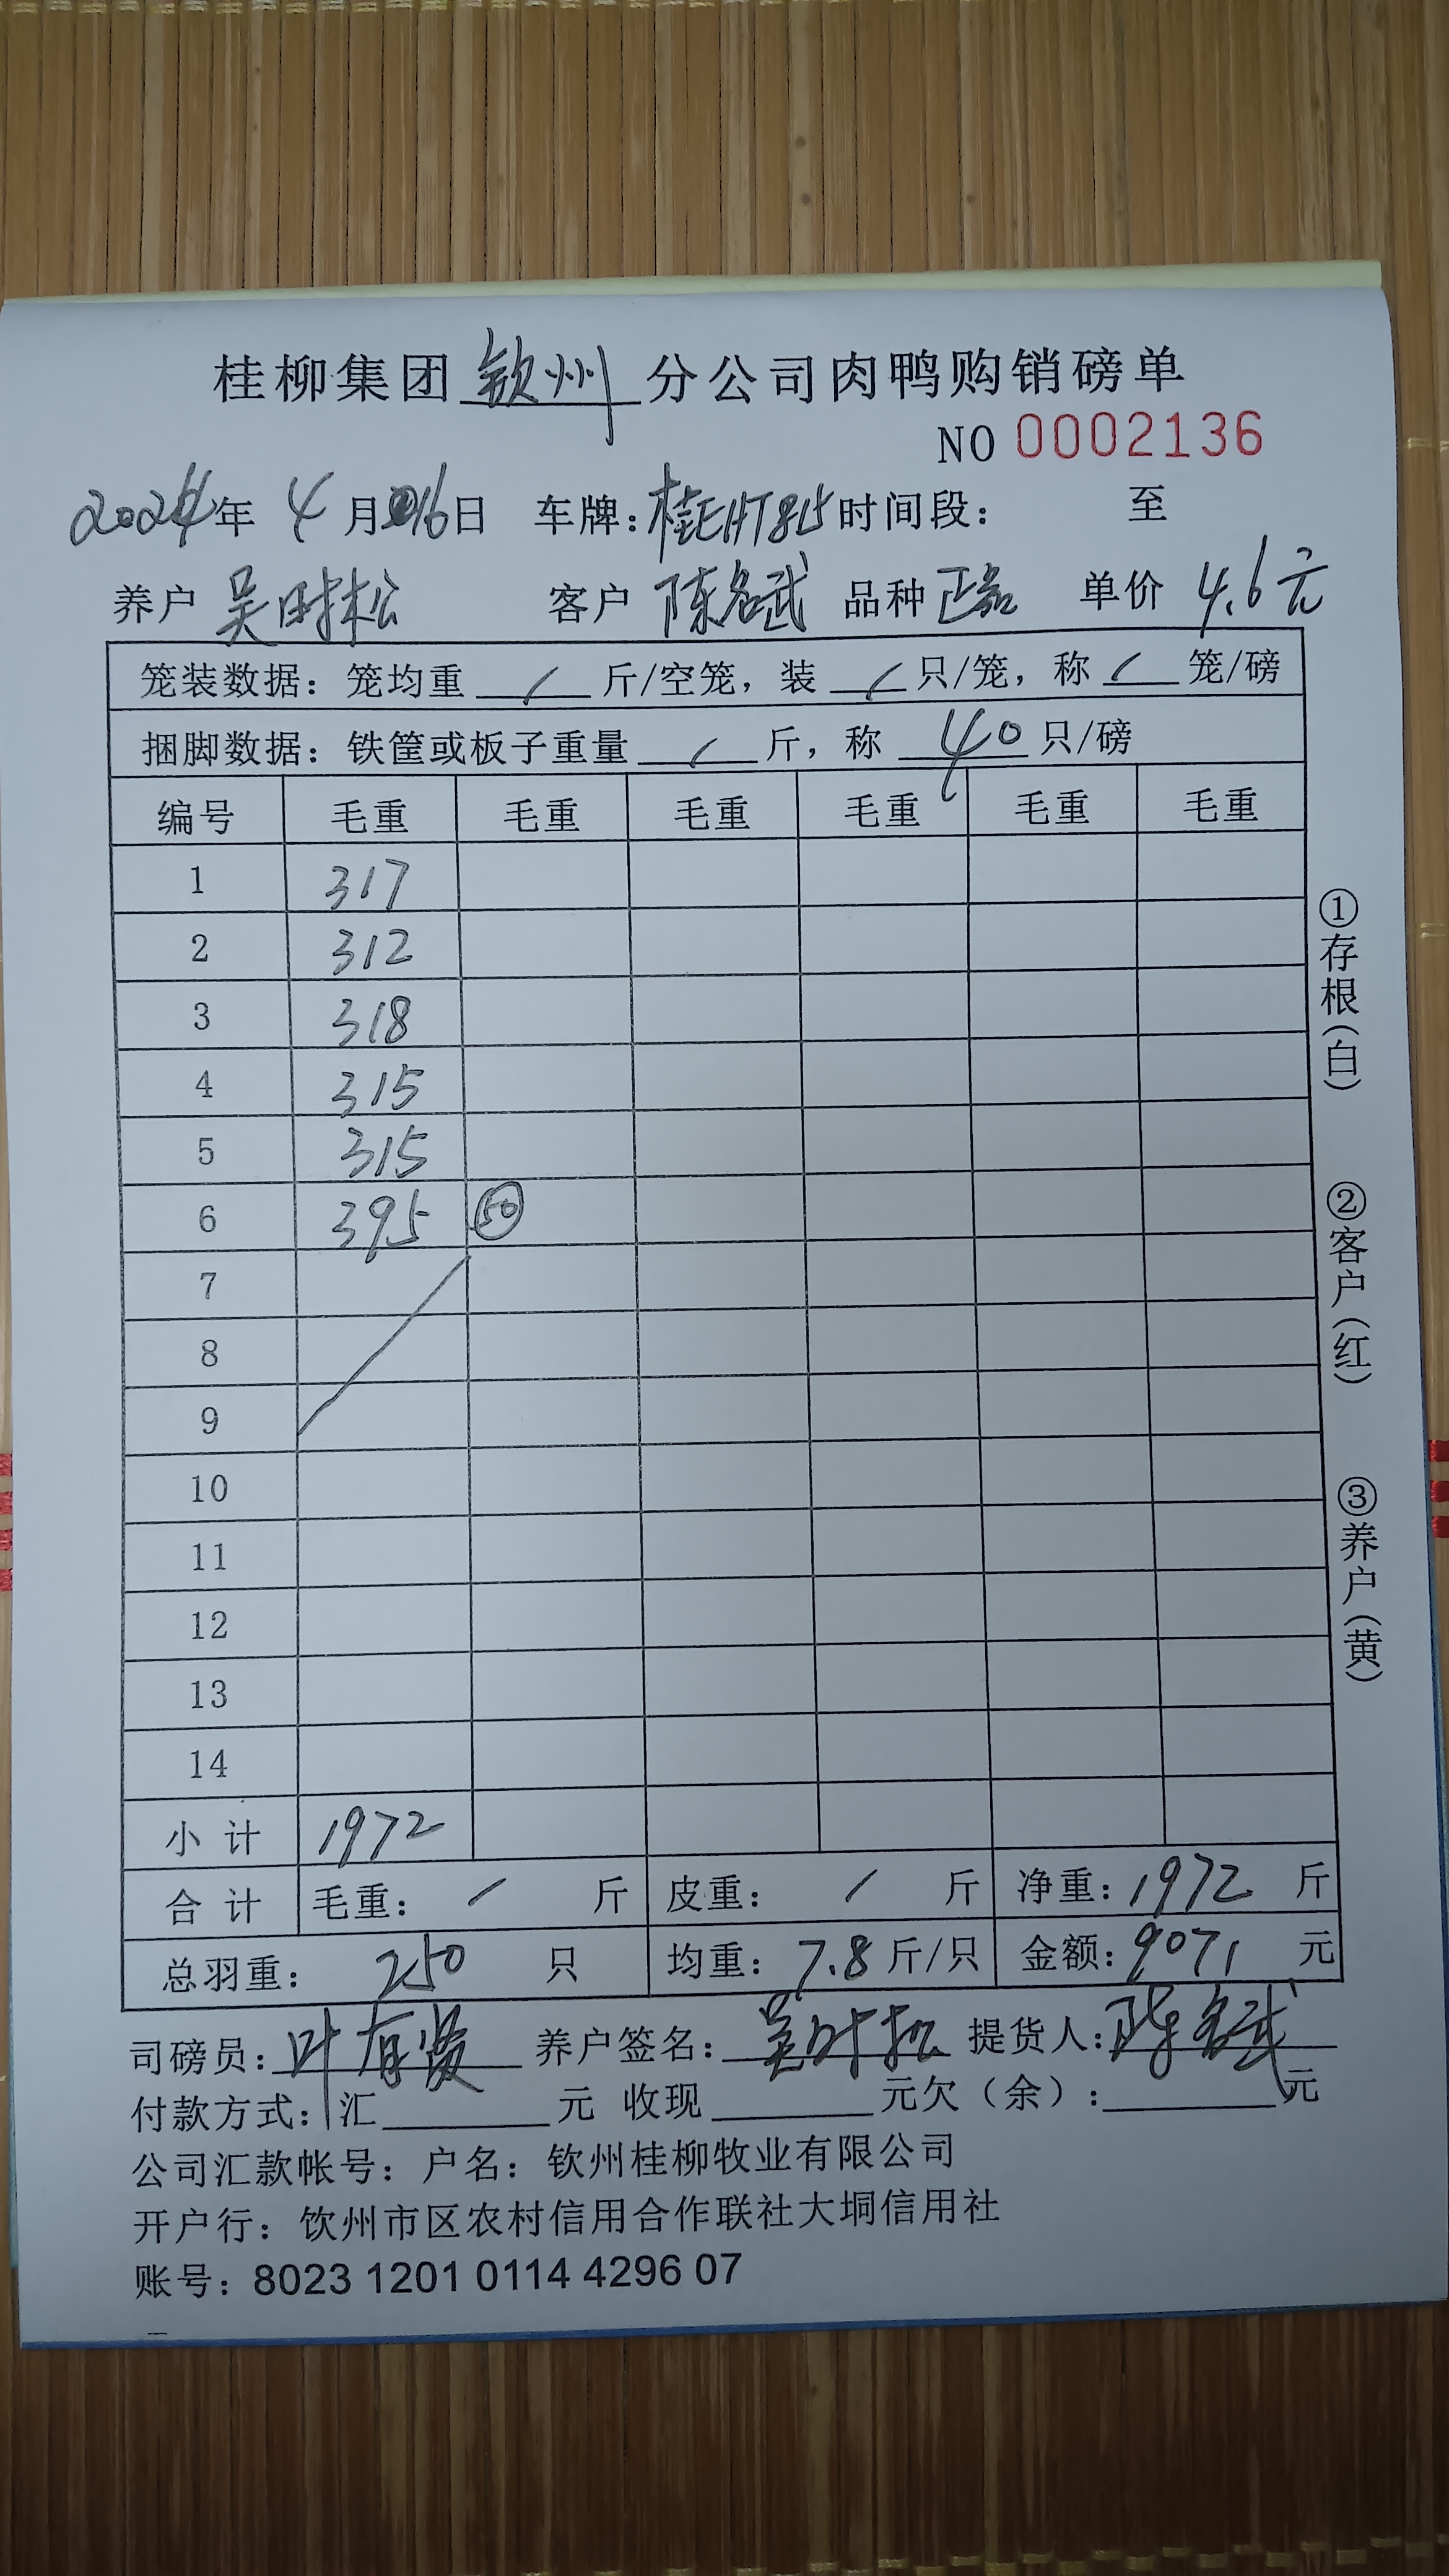 桂柳集团钦州分公司肉鸭购销磅单
NO 0002136
2024年 4月16日 车牌:桂EHT815时间段: 至
养户 吴时松 客户 陈名武 品种 正品 单价 4.6元
笼装数据:笼均重 / 斤/空笼,装 / 只/笼,称 / 笼/磅
捆脚数据:铁筐或板子重量 / 斤,称 40 只/磅
编号 毛重 毛重 毛重 毛重 毛重 毛重
1 317
2 312
3 318
4 315
5 315
6 395 50
7
8
9
10
11
12
13
14
小计 1972
合计 毛重: / 斤 皮重: / 斤 净重:1972 斤
总羽重: 250 只 均重:7.8斤/只 金额:9071 元
司磅员:叶有 养户签名:吴时松 提货人:陈名武
付款方式:汇 元 收现 元欠(余): 元
公司汇款帐号:户名:钦州桂柳牧业有限公司
开户行:饮州市区农村信用合作联社大垌信用社
账号:8023 1201 0114 4296 07
①存根(白)
②客户(红)
③养户(黄)